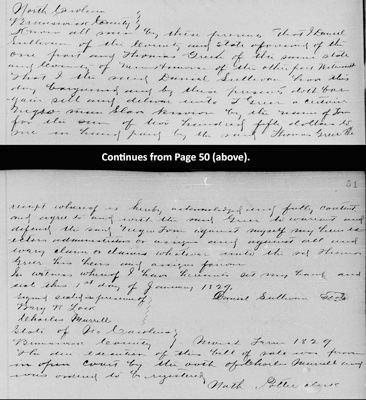 North Carolina
Brunswick County
Know all men by these presents That I Daniel
Sullivan of the County and State aforesaid of the
one part and Thomas Greer of the same state
and County of the other part Witnesseth
That I the said Daniel Sullivan have this
day bargained and by these presents doth bar
gain sell and deliver unto T Greer a certain
Negro man Slave known by the name of Tom
for the sum of two hundred fifty dollars to
me in hand paid by the said Thomas Greer the
Continues from Page 50 (above).
51
receipt whereof is hereby acknowledged and fully content
and agree to and with the said Greer to warrant and
defend the said Negro Tom against myself my heirs
extors administrators or assigns and against all and
every claim or claims whatever unto the sd Thomas
Greer his heirs and assigns forever
In witness whereof I have hereunto set my hand and
seal this 1st day of January 1829.
Signed sealed in presence of Daniel Sullivan Seal
Charles Murrell
State of No Carolina
Brunswick County March Term 1829
The due execution of this bill of sale was proven
in open Court by the oath of Charles Murrell and
was ordered to be registered
Nath Potter